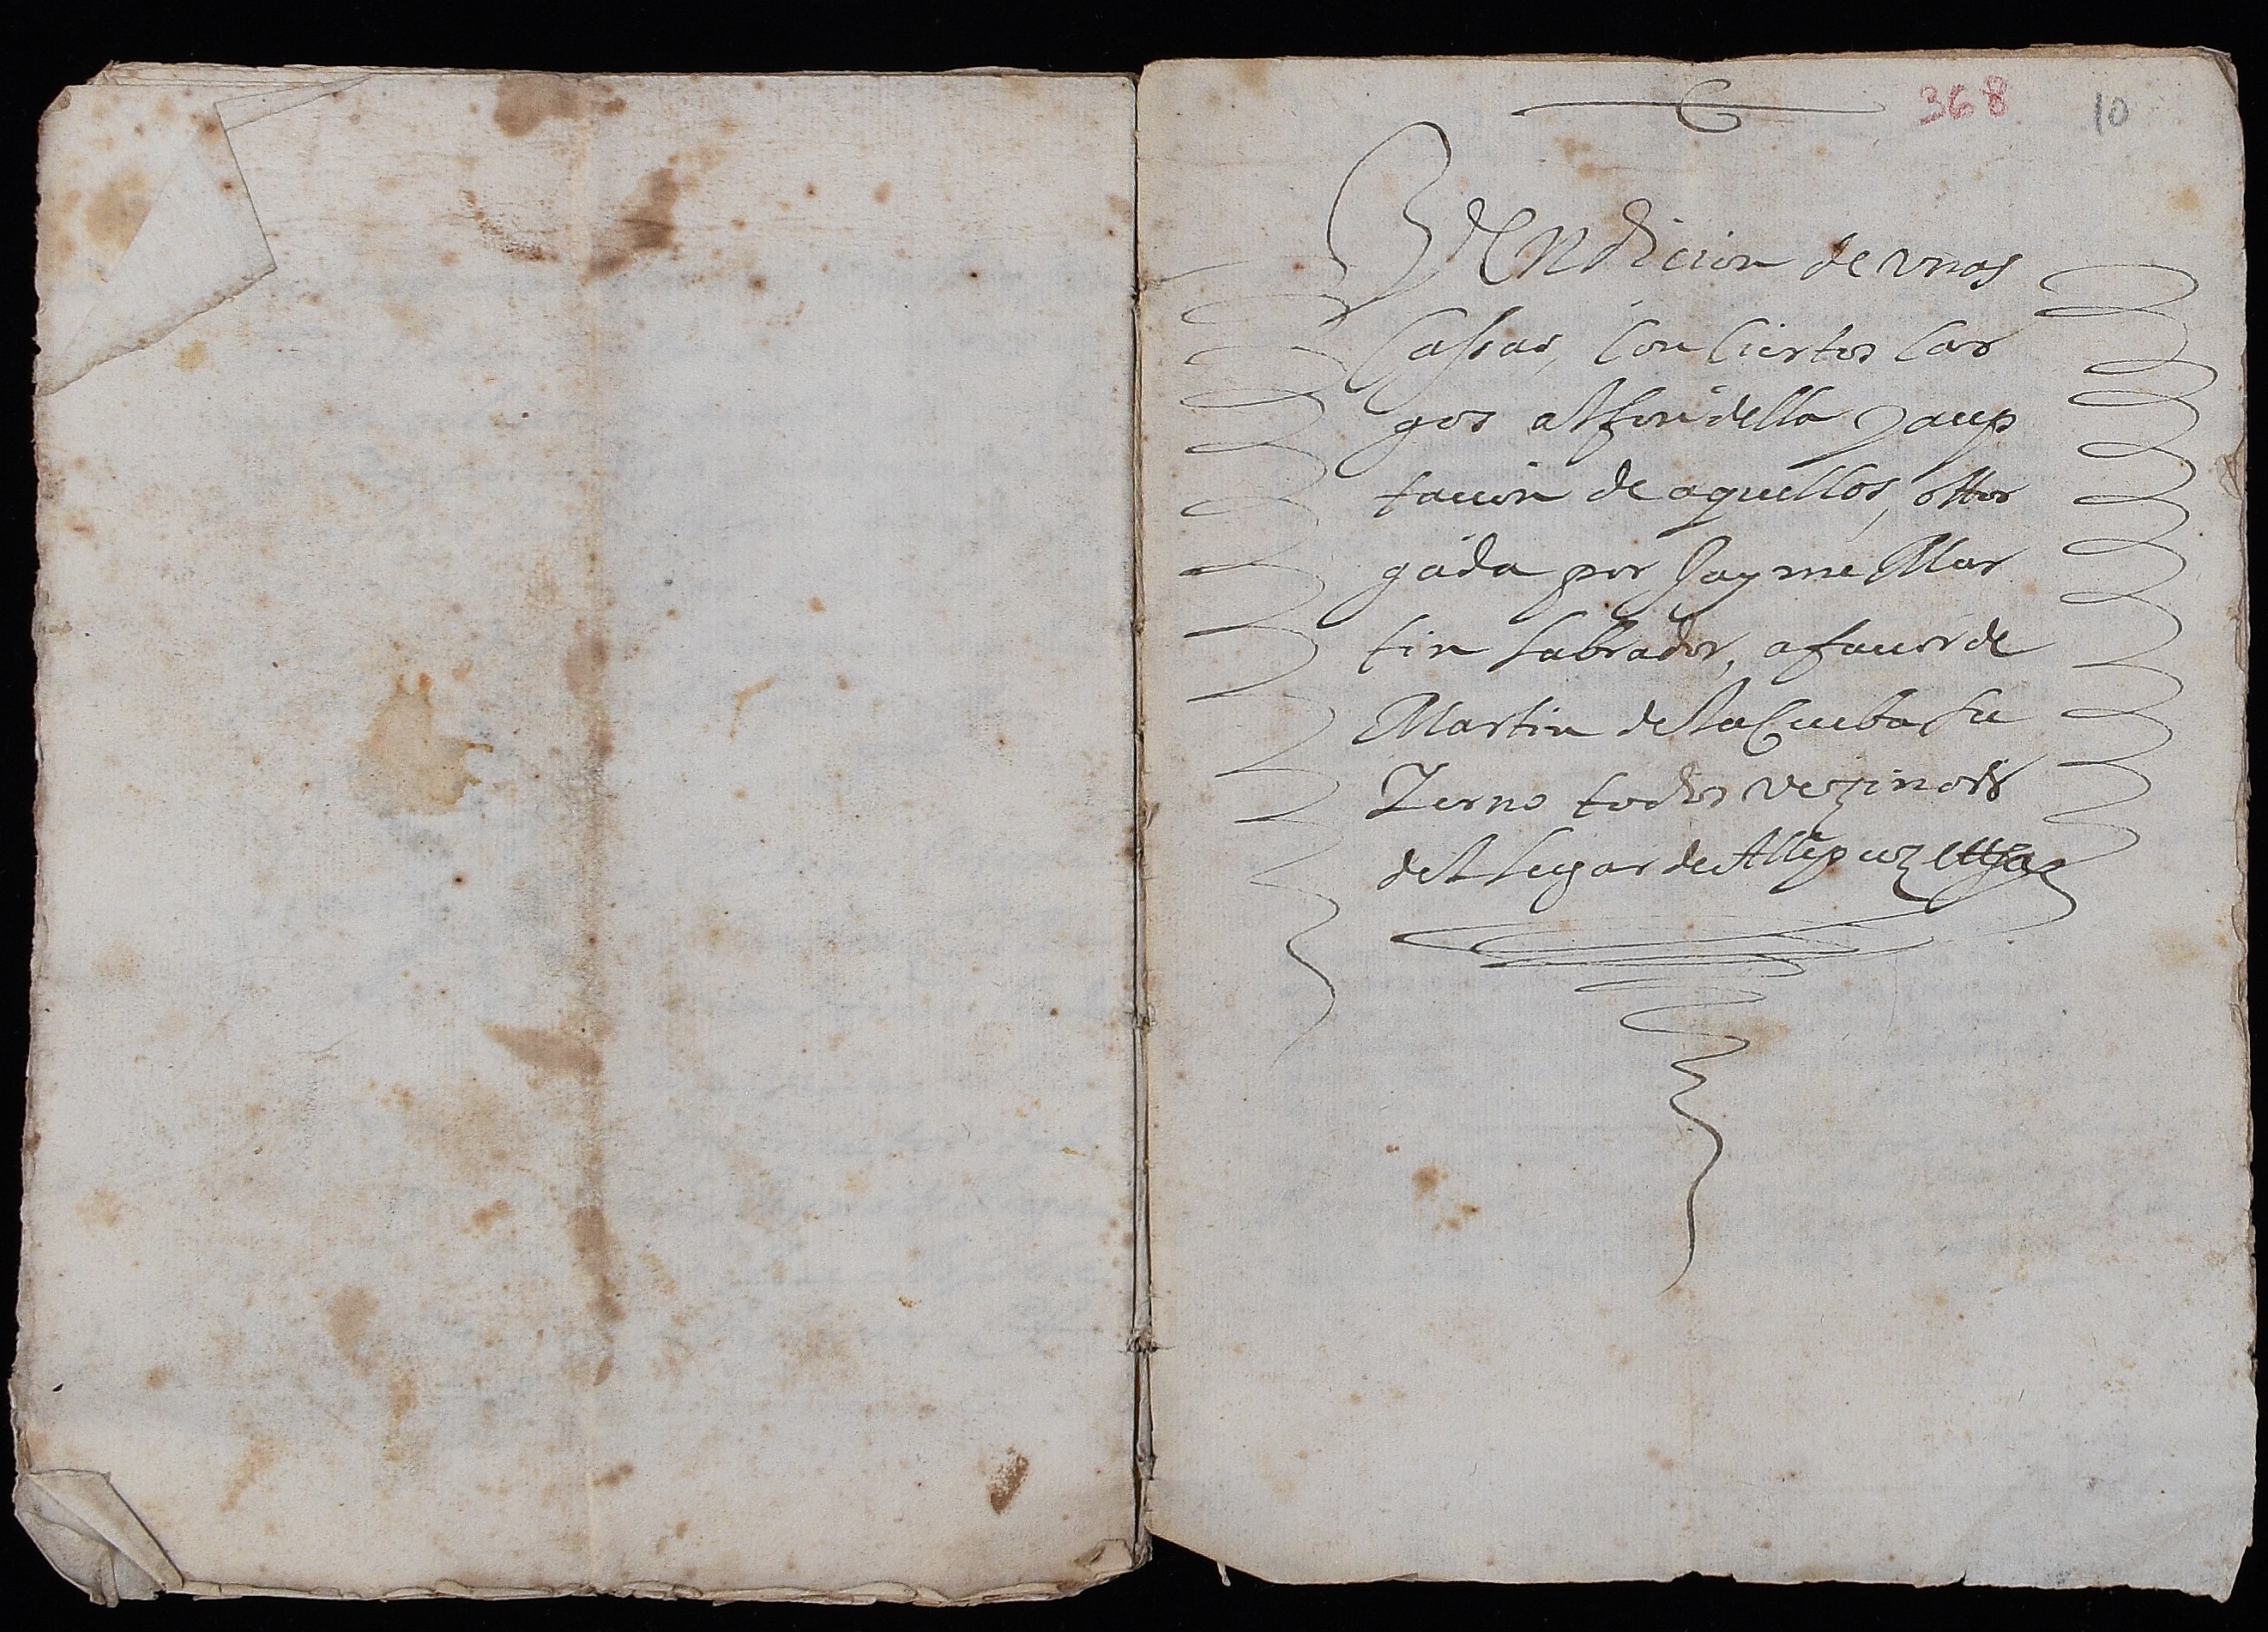 368 10
Vendicion de unas
Cassas, con Ciertos Car
gos al fin della y acep
tacion de aquellos, ottor
gada por Jayme Mar
tin Labrador, a fauor de
Martin de la Cueba su
Yerno todos vezinos
del Lugar de Allepuz